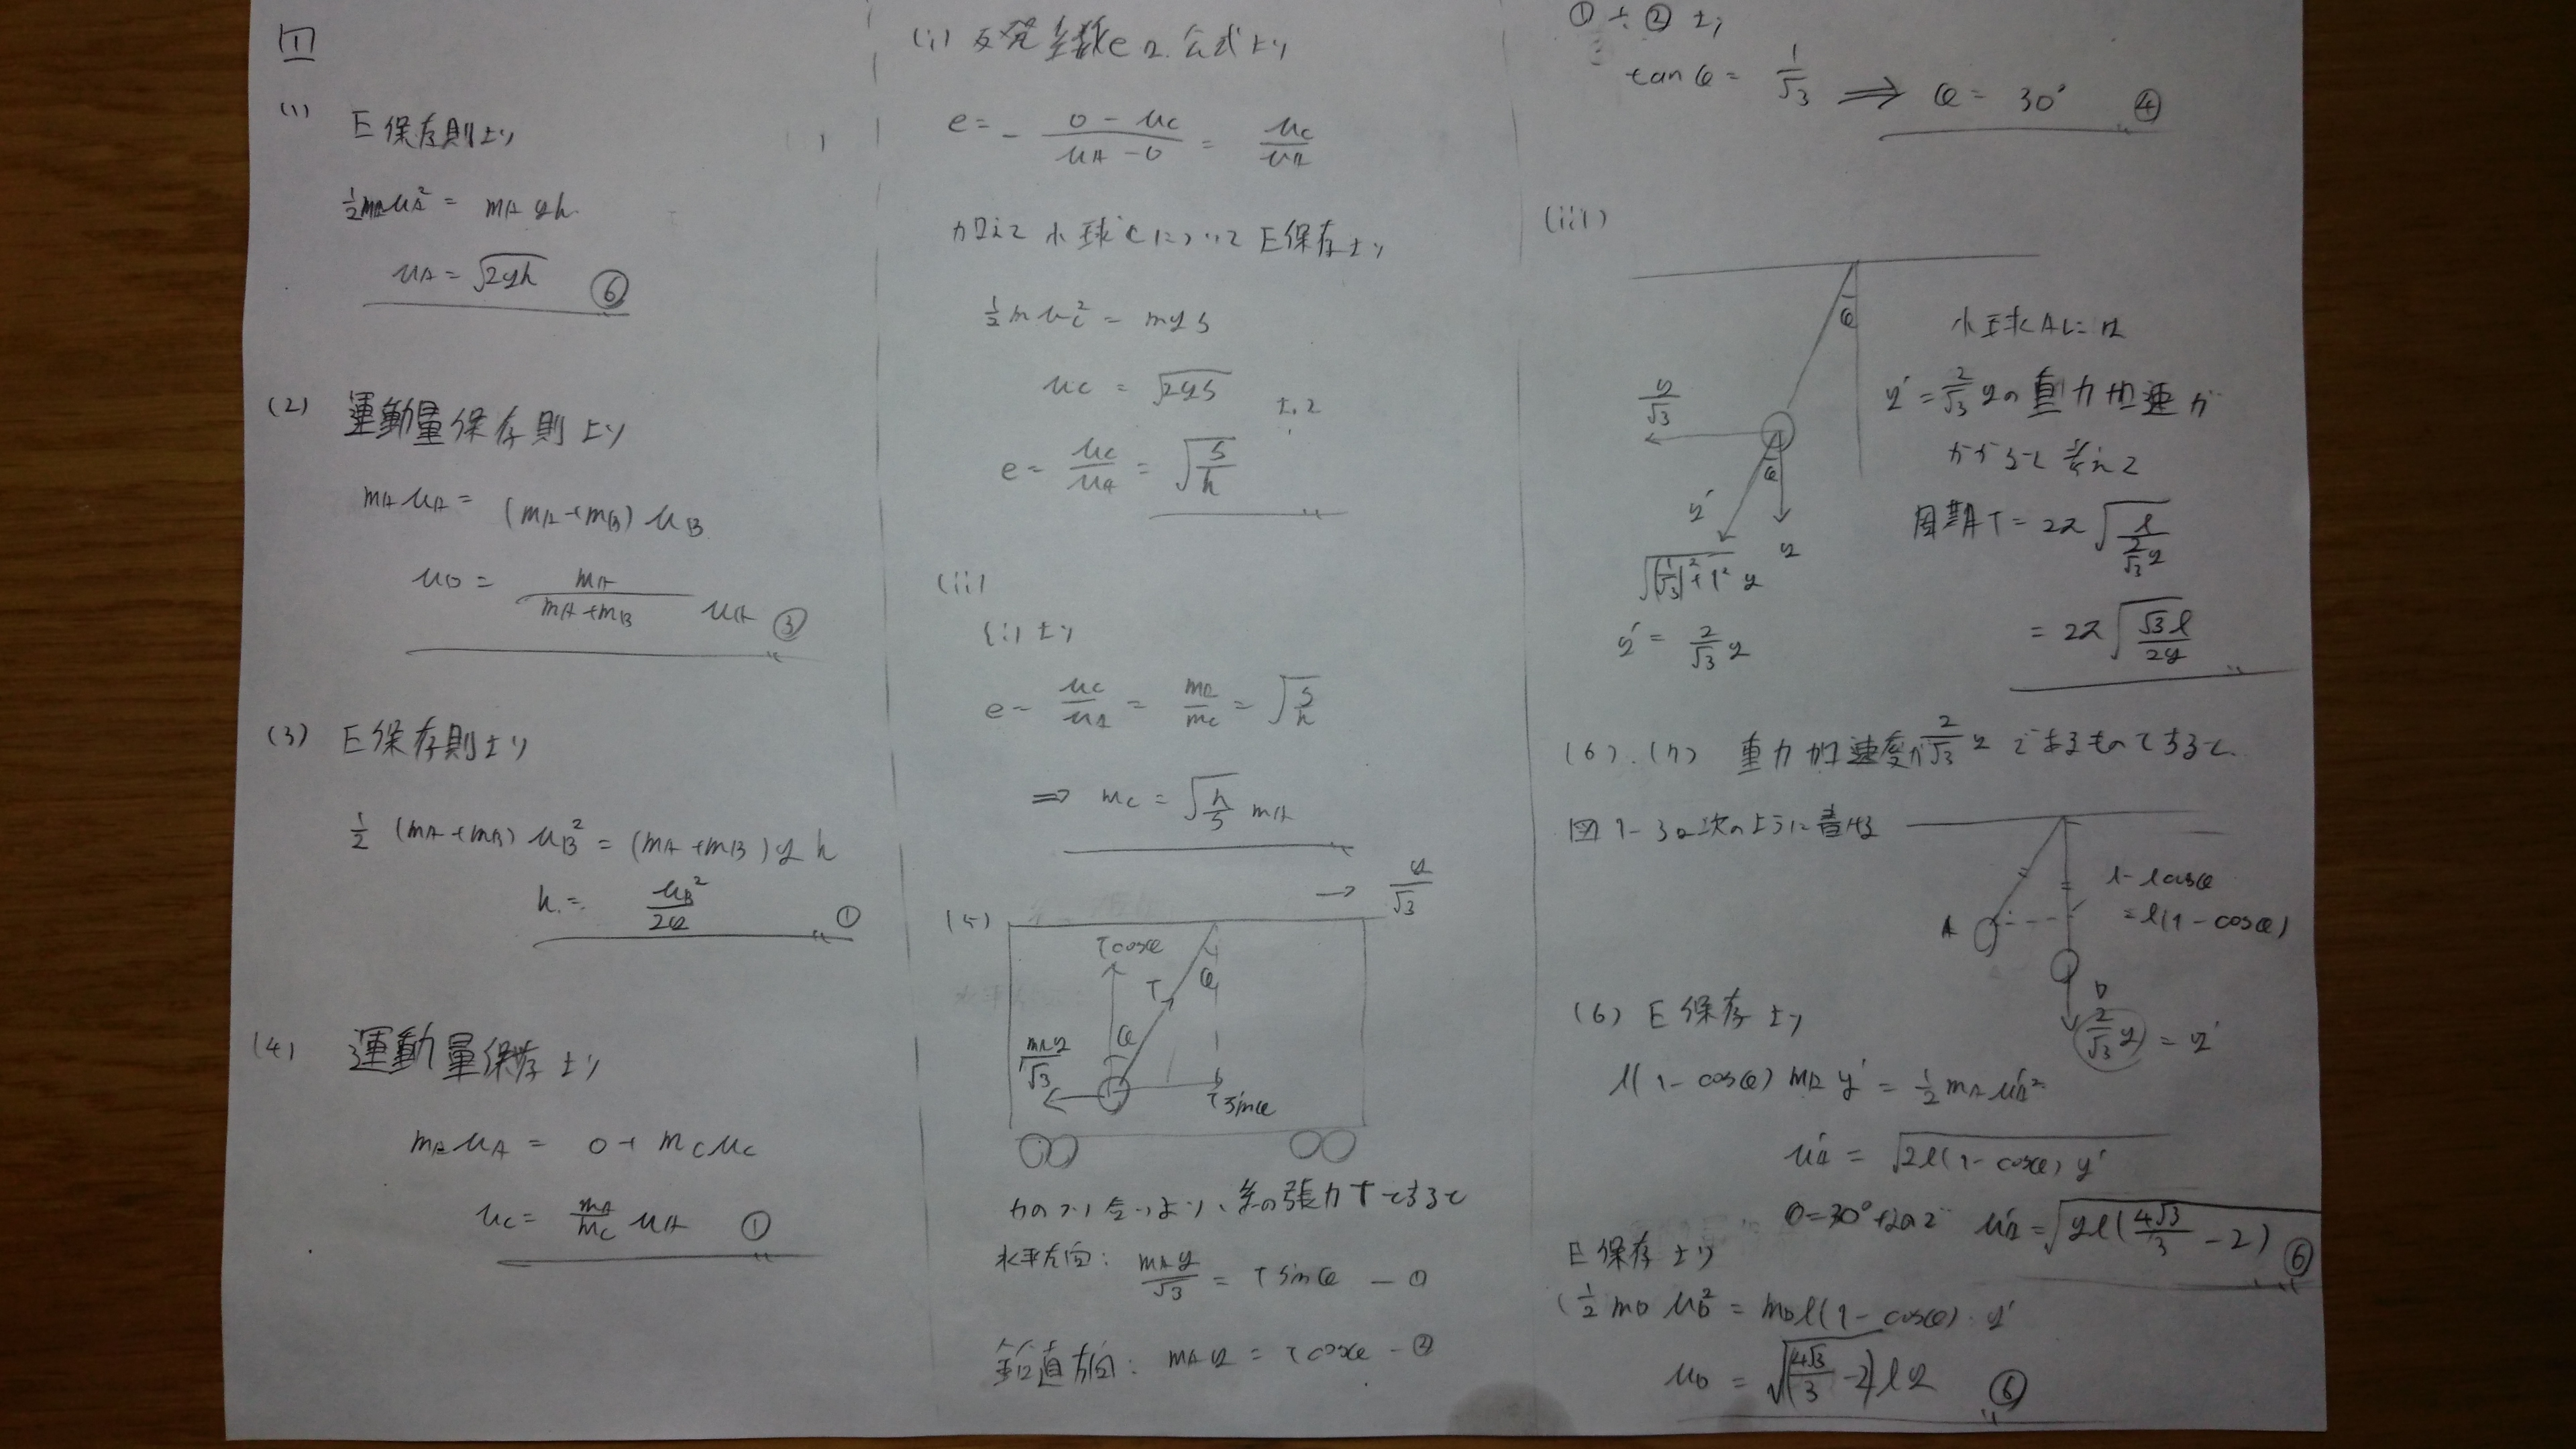 1
(1) E保存則より
½mAuA² = mAgh
uA = √2gh ⑥
(2) 運動量保存則より
mAuA = (mA+mB)uB
uB = mA/(mA+mB) uA ③
(3) E保存則より
½(mA+mB)uB² = (mA+mB)gh
h = uB²/2g ①
(4) 運動量保存より
mAuA = 0 + mCuC
uC = mA/mC uA ①
(i) 反発係数eの公式より
e = - (0-uC)/(uA-0) = uC/uA
加えて小球CについてE保存より
½muC² = mgs
uC = √2gs よって
e = uC/uA = √(s/h)
(ii)
(i)より
e = uC/uA = mA/mC = √(s/h)
⇒ mC = √(h/s) mA
(5)
→ g/√3
Tcosθ
T
θ
θ
mAg/√3
Tsinθ
力のつり合いより、糸の張力Tとすると
水平方向: mAg/√3 = Tsinθ -①
鉛直方向: mAg = Tcosθ -②
①÷②より
tanθ = 1/√3 ⇒ θ = 30° ④
(iii)
θ
g/√3
θ
g'
g
√((1/√3)²+1²) g
g' = 2/√3 g
小球Aには
g' = 2/√3 gの重力加速が
かかると考えて
周期T = 2π√(l/(2/√3 g))
= 2π√(√3l/2g)
(6).(7) 重力加速度が2/√3 gであるものとすると、
図1-3は次のように書ける
l-lcosθ
=l(1-cosθ)
A
D
2/√3 g = g'
(6) E保存より
l(1-cosθ)mAg' = ½mAuA'²
uA' = √2l(1-cosθ)g'
θ=30°なので uA' = √gl(4√3/3 - 2) ⑥
E保存より
½mDuD² = mDl(1-cosθ)g'
uD = √(4√3/3 -2)lg ⑥